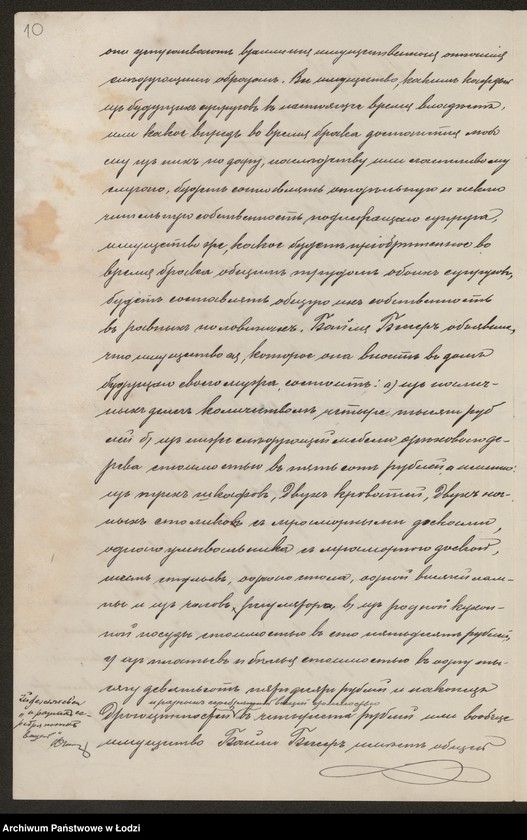 10
они устраиваютъ взаимныя имущественныя отношенія
слѣдующимъ образомъ. Все имущество, какимъ каждый
изъ будущихъ супруговъ въ настоящее время владѣетъ,
или какое впредь во время брака достанется любо
му изъ нихъ по дару, наслѣдству или счастливому
случаю, будетъ составлять отдѣльную и исклю
чительную собственность подлежащаго супруга,
имущество же, какое будетъ пріобрѣтенное во
время брака общимъ трудомъ обоихъ супруговъ,
будетъ составлять общую ихъ собственность
въ равныхъ половинахъ. Байля Бекеръ объявила,
что имущество ея, которое она вноситъ въ домъ
будущаго своего мужа состоитъ: а) изъ налич-
ныхъ денегъ количествомъ четыре тысячи руб
лей б) изъ слѣдующей мебели орѣховаго де-
рева стоимостью въ пять сотъ рублей, а именно:
изъ трехъ шкафовъ, двухъ кроватей, двухъ ноч-
ныхъ столиковъ съ мраморными досками,
одного умывальника съ мраморною доской,
шесть стульевъ, одного стола, одной висячей лам-
пы и изъ часовъ регулятора в) изъ разной кухон-
ной посуды стоимостью въ сто пятьдесятъ рублей,
г) изъ платьевъ и бѣлья стоимостью въ одну ты-
сячу девятьсотъ пятьдесятъ рублей и наконецъ
и разныхъ серебряныхъ вещей стоимостью
Драгоцѣнностей въ четыреста рублей или вообще
имущество Байли Бекеръ имѣетъ общей
„и разныхъ се-
ребряныхъ
вещей"
Archiwum Państwowe w Łodzi